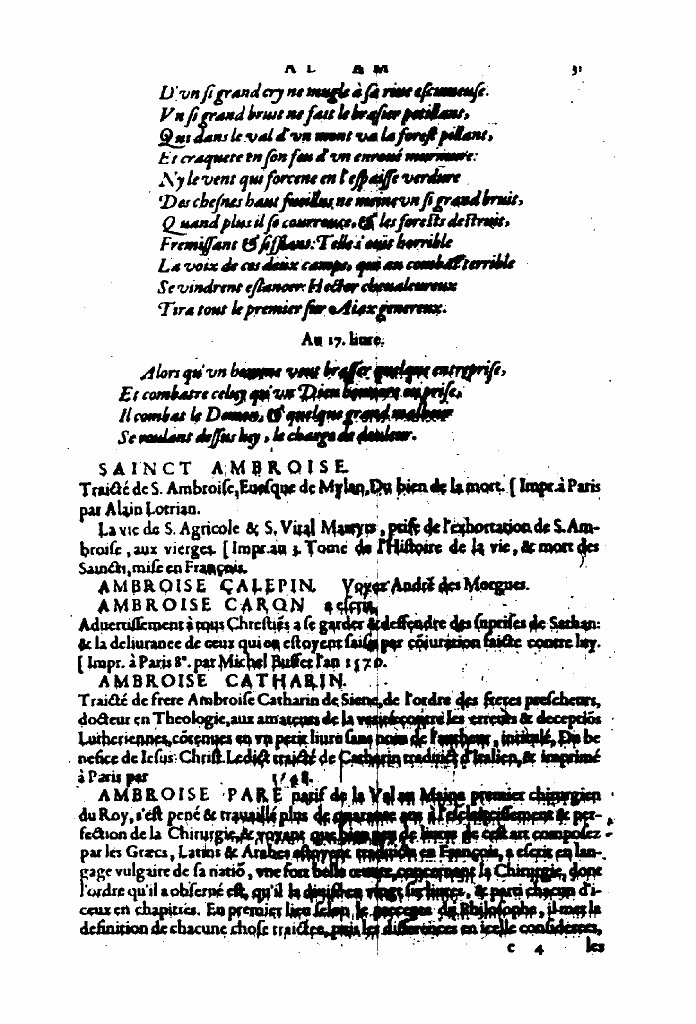 AL AM 31
D'vn si grand cry ne mugle à sa riue escumeuse.
Vn si grand bruit ne fait le brasier petillant,
Qui dans le val d'vn mont va la forest pillant,
Et craquete en son feu d'vn enroué murmure:
Ny le vent qui forcene en l'espaisse verdure
Des chesnes haut fueillus ne meine vn si grand bruit,
Quand plus il se courrouce, & les forests destruit,
Fremissant & sifflant: Telle s'ouit horrible
La voix de ces deux camps, qui au combat terrible
Se vindrent eslancer: Hector cheualeureux
Tira tout le premier sur Aiax genereux.
Au 17. liure.
Alors qu'vn homme veut brasser quelque entreprise,
Et combatre celuy qu'vn Dieu honnore ou prise,
Il combat le Demon, & quelque grand malheur
Se voulant dessus luy, le charge de douleur.
SAINCT AMBROISE.
Traicté de S. Ambroise, Euesque de Mylan, Du bien de la mort. [Impr. à Paris
par Alain Lotrian.
La vie de S. Agricole & S. Vital Martyrs, prise de l'exhortation de S. Am-
broise, aux vierges. [Impr. au 3. Tome de l'Histoire de la vie, & mort des
Saincts, mise en François.
AMBROISE CALEPIN. Voyez André des Morgues.
AMBROISE CARON a escrit,
Aduertissement à tous Chrestiēs a se garder & deffendre des surprises de Sathan:
& la deliurance de ceux qui en estoyent saisis par cōiuration faicte contre luy.
[Impr. à Paris 8°. par Michel Buffet l'an 1570.
AMBROISE CATHARIN.
Traicté de frere Ambroise Catharin de Siene, de l'ordre des freres prescheurs,
docteur en Theologie, aux amateurs de la verité, contre les erreurs & deceptiōs
Lutheriennes, cōtenues en vn petit liure sans nom de l'autheur, intitulé, Du be
nefice de Iesus Christ. Ledict traicté de Catharin traduict d'Italien, & imprimé
à Paris par 1548.
AMBROISE PARE natif de la Val au Maine premier chirurgien
du Roy, s'est pené & trauaillé plus de quarante ans à l'esclaircissement & per-
fection de la Chirurgie, & voyant que bien peu de liures de cest art composez
par les Græcs, Latins & Arabes estoyent traduicts en François, a escrit en lan-
gage vulgaire de sa natiō, vne fort belle œuure, concernant la Chirurgie, dont
l'ordre qu'il a obserué est, qu'il la diuisé en vingt six liures, & parti chacun d'i-
ceux en chapitres. En premier lieu selon le precepte du Philosophe, il met la
definition de chacune chose traictee, puis les differences en icelle considerees,
c 4 les